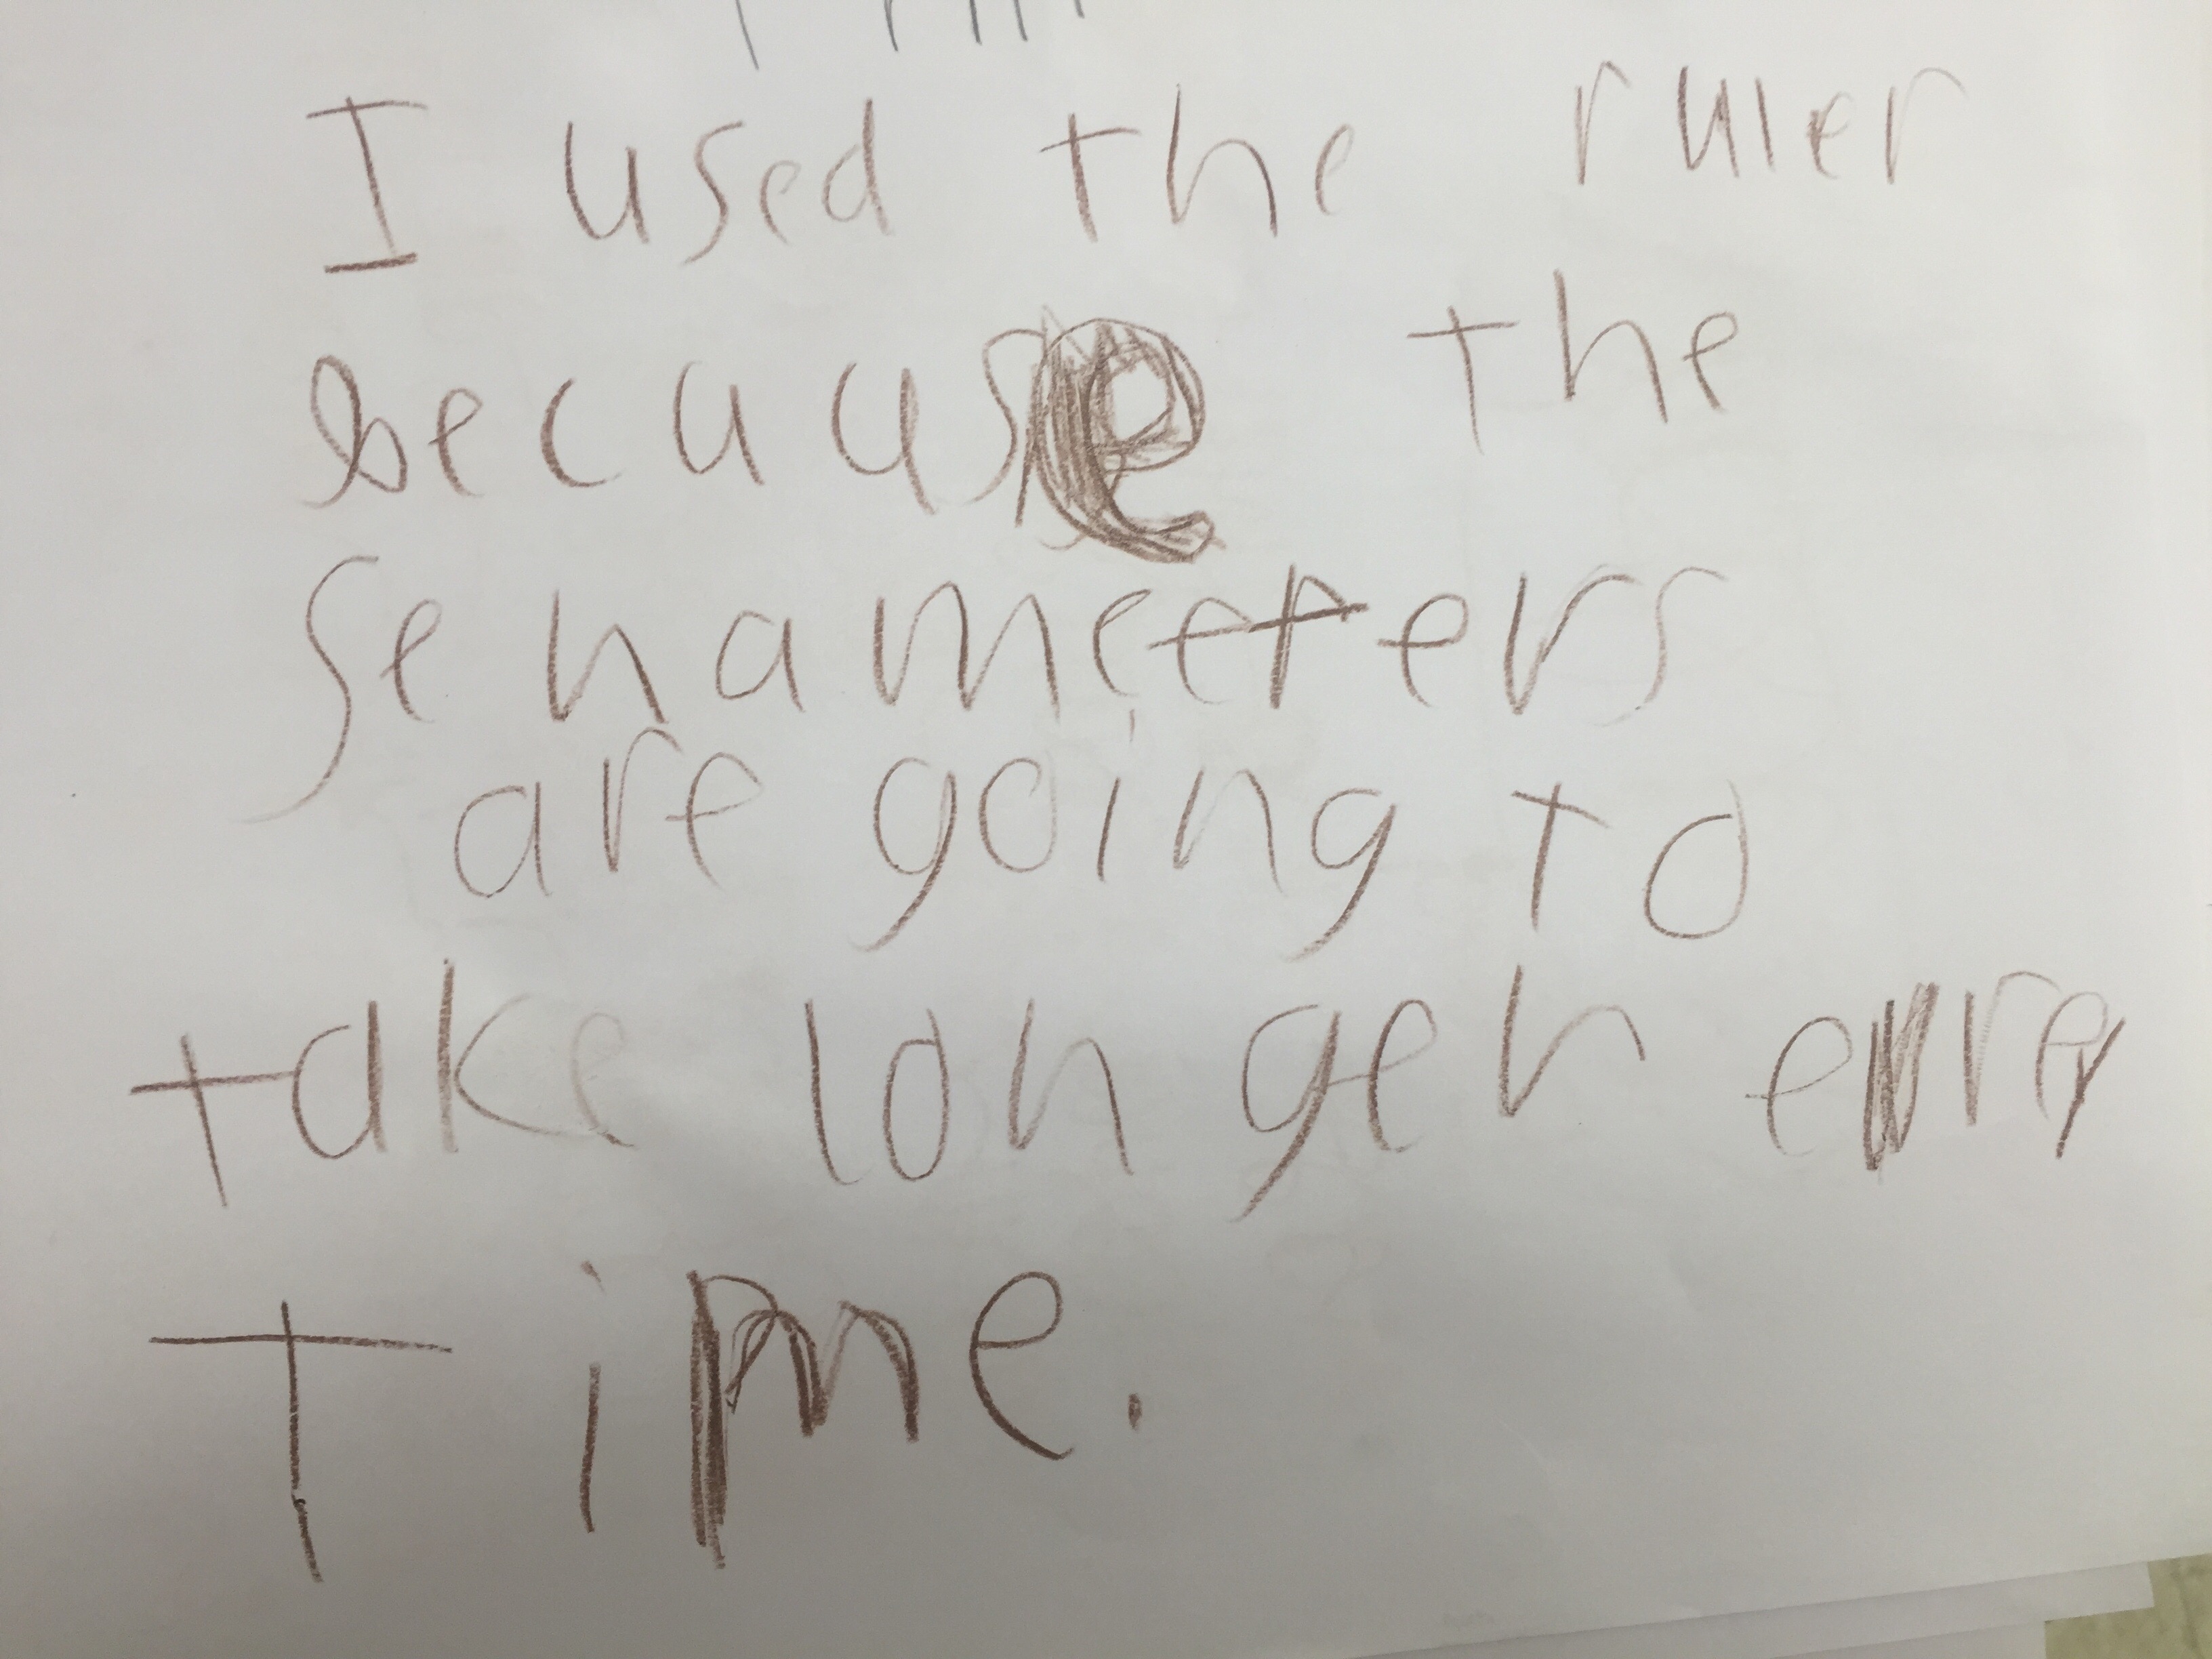 I used the ruler
because the
senameeters
are going to
take longer
time.